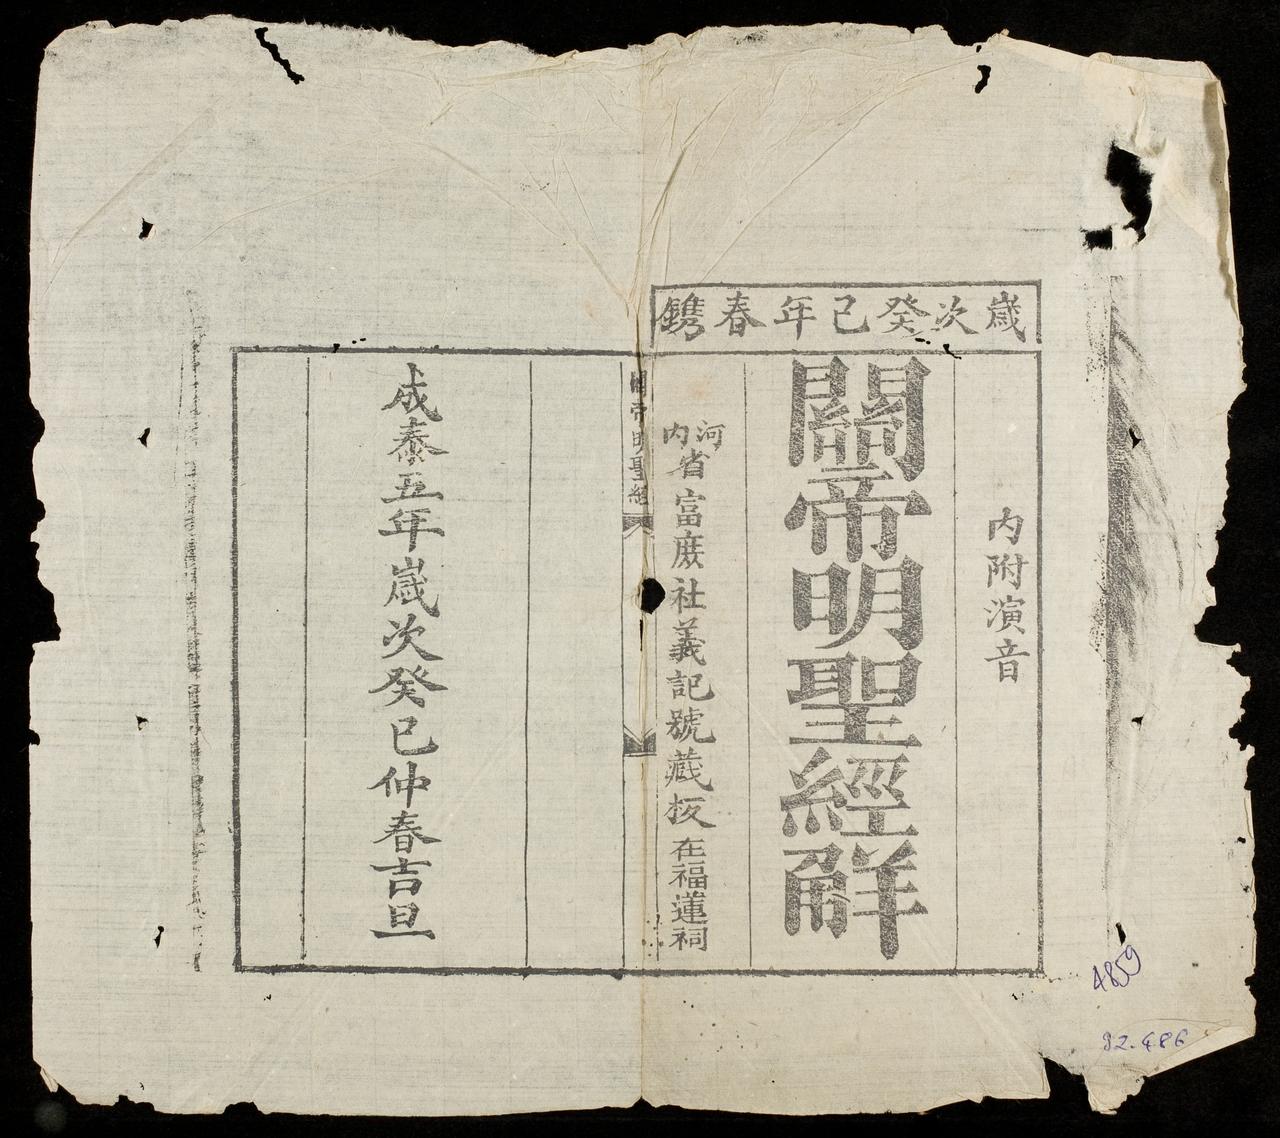 歲次癸巳年春鐫
內附演音
關帝明聖經解
河內省富庶社義記號藏板在福蓮祠
關帝明聖經
成泰五年歲次癸巳仲春吉旦
4859
92-486